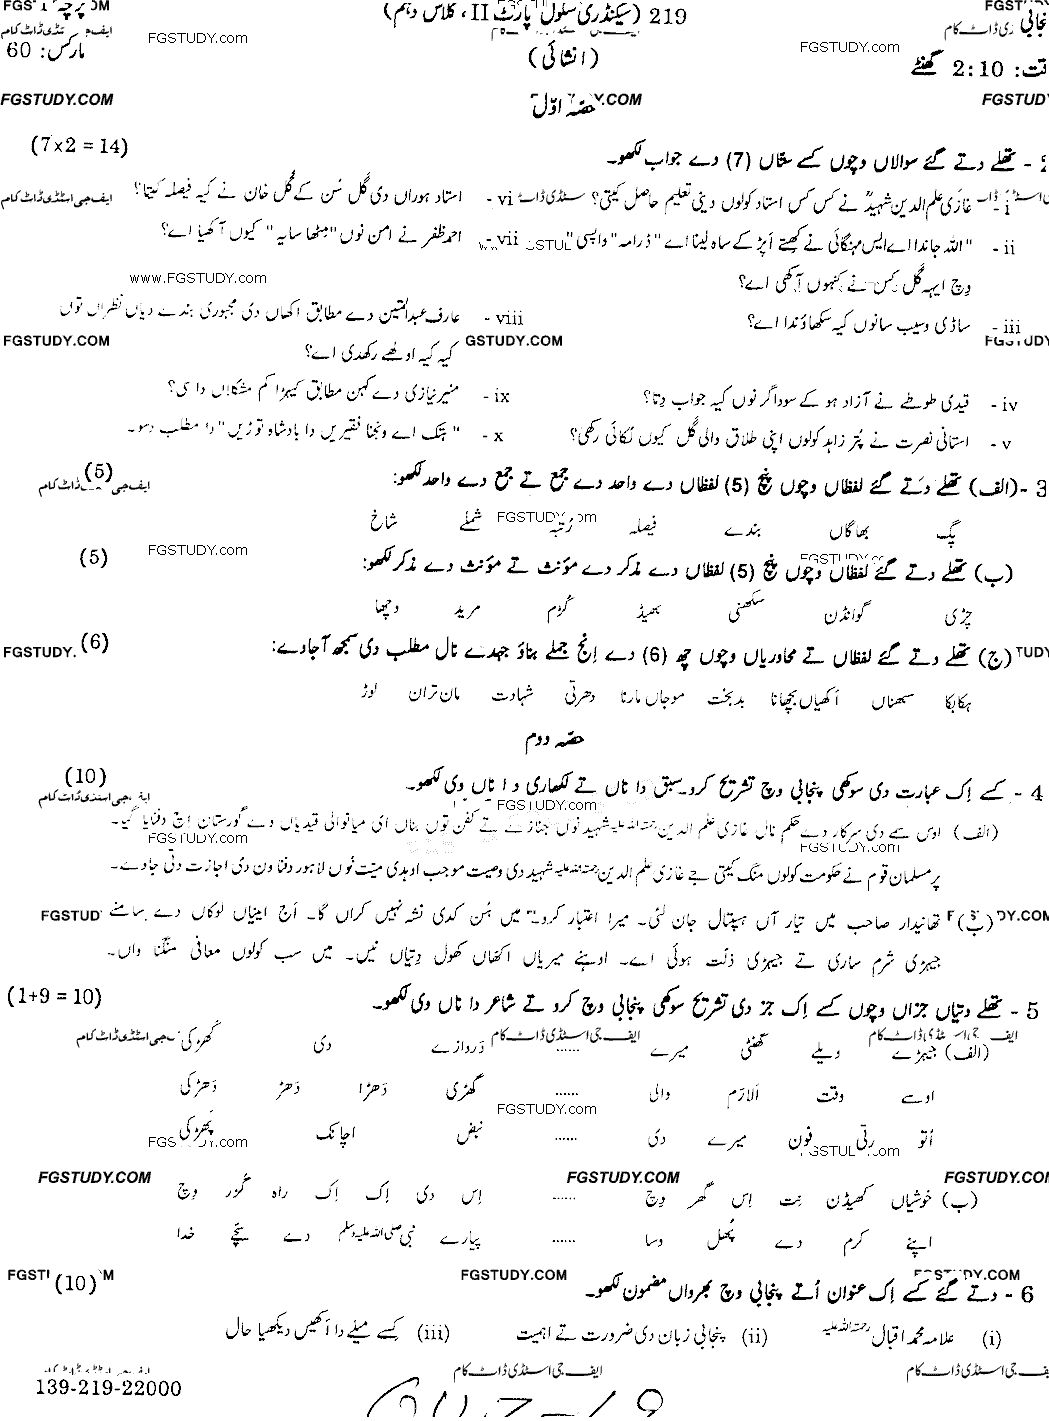 219 (سیکنڈری سکول پارٹ II ، کلاس دہم)
(انشائی)
مارکس: 60
2:10 گھنٹے
FGSTUDY.com
FGSTUDY.com
FGSTUDY.COM
حصّہ اوّل
(7x2 = 14)
2 - تھلے دتے گئے سوالاں وچوں کسے ستّاں (7) دے جواب لکھو۔
i - غازی علم الدین شہیدؒ نے کس کس استاد کولوں دینی تعلیم حاصل کیتی؟
vi - استاد ہوراں دی گل سُن کے گُل خان نے کیہ فیصلہ کیتا؟
ii - "اللہ جاندا اے ایس مہنگائی نے کھتے اپڑ کے ساہ لینا اے" ڈرامہ "واپسی"
وچ ایہہ گل کس نے کنہوں آکھی اے؟
vii - احمد ظفر نے امن نوں "مِٹھا سایہ" کیوں آکھیا اے؟
www.FGSTUDY.com
iii - ساڈی وسیب سانوں کیہ سکھاؤندا اے؟
viii - عارف عبدالمتین دے مطابق اکھاں دی مجبوری بندے دیاں نظراں توں
کیہ کیہ اوہلے رکھدی اے؟
FGSTUDY.COM
iv - قیدی طوطے نے آزاد ہو کے سوداگر نوں کیہ جواب دِتا؟
ix - منیر نیازی دے کہن مطابق کیہڑا کم مشکلاں دا سی؟
v - استانی نصرت نے پُتر زاہد کولوں اپنی طلاق والی گل کیوں لُکائی رکھی؟
x - "ہتک اے ونجنا فقیریں دا بادشاہ توڑیں" دا مطلب دسو۔
3 -(الف) تھلے دتے گئے لفظاں وچوں پنج (5) لفظاں دے واحد دے جمع تے جمع دے واحد لکھو: (5)
پگ بھاگاں بندے فیصلہ رُتبہ شملے شاخ
FGSTUDY.com
(ب) تھلے دتے گئے لفظاں وچوں پنج (5) لفظاں دے مذکر دے مؤنث تے مؤنث دے مذکر لکھو: (5)
چڑی گوانڈن سکھنی بھیڈ کُڑم مرید وچھا
(ج) تھلے دتے گئے لفظاں تے محاوریاں وچوں چھ (6) دے اِنج جملے بناؤ جہدے نال مطلب دی سمجھ آجاوے: (6)
ہکا بکا سبھناں اکھیاں بچھانا بدبخت موجاں مارنا دھرتی شہادت مان تران لوڑ
حصّہ دوم
4 - کسے اِک عبارت دی سوکھی پنجابی وچ تشریح کرو۔ سبق دا ناں تے لکھاری دا ناں وی لکھو۔ (10)
(الف) اوس سمے دی سرکار دے حکم نال غازی علم الدین رحمۃ اللہ علیہ شہید نوں جنازے تے کفن توں بناں ای میانوالی قیدیاں دے گورستان اچ دفنایا گیا۔
پر مسلمان قوم نے حکومت کولوں منگ کیتی جے غازی علم الدین رحمۃ اللہ علیہ شہید دی وصیت موجب اوہدی میّت نوں لاہور دفناون دی اجازت دتی جاوے۔
(ب) تھانیدار صاحب میں تیار آں ہسپتال جان لئی۔ میرا اعتبار کرو۔ میں ہُن کدی نشہ نہیں کراں گا۔ اَج اینیاں لوکاں دے سامنے
جیہڑی شرم ساری تے جیہڑی ذلت ہوئی اے۔ اوہنے میریاں اکھاں کھول دِتیاں نیں۔ میں سب کولوں معافی منگنا واں۔
5 - تھلے دتیاں جزاں وچوں کسے اِک جز دی تشریح سوکھی پنجابی وچ کرو تے شاعر دا ناں وی لکھو۔ (1+9 = 10)
(الف) جیہڑے ویلے گھنٹی میرے ...... دَروازے دی کھڑکی
اوسے وقت اَلارَم والی ...... گھڑی دَھڑا دَھڑ دَھڑکی
اُتو رتی فون میرے دی ...... نبض اچانک پھڑکی
FGSTUDY.com
FGSTUDY.COM FGSTUDY.COM
(ب) خوشیاں کھیڈن نِت اِس گھر وِچ ...... اِس دی اِک اِک راہ گُزر وِچ
اپنے کرم دے پُھل وسا ...... پیارے نبی صلی اللہ علیہ وسلم دے سچے خدا
FGSTUDY.COM
6 - دتے گئے کسے اِک عنوان اُتے پنجابی وچ بھرواں مضمون لکھو۔ (10)
(i) علامہ محمد اقبال رحمۃ اللہ علیہ (ii) پنجابی زبان دی ضرورت تے اہمیت (iii) کسے میلے دا اَکھیں دیکھیا حال
ایف جی اسٹڈی ڈاٹ کام
139-219-22000